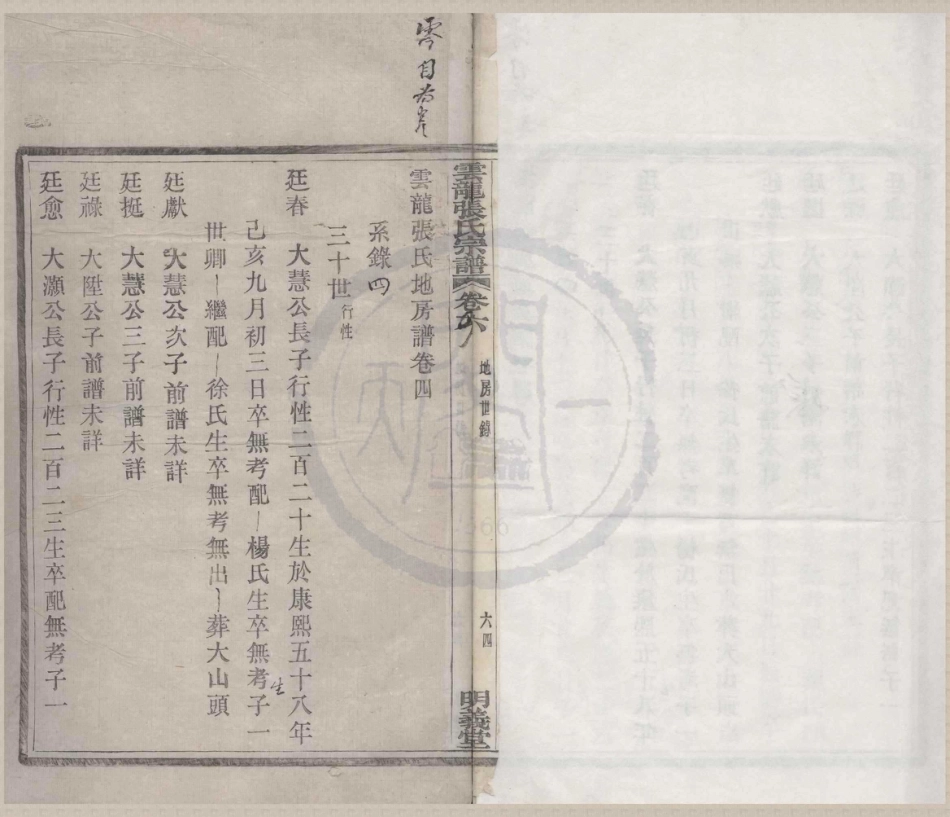 雲龍張氏宗譜
卷六
地房世錄
六四
明義堂
雲龍張氏地房譜卷四
系錄四
三十世行性
廷春 大慧公長子行性二百二十生於康熙五十八年
己亥九月初三日卒無考配楊氏生卒無考子一
生
世卿繼配徐氏生卒無考無出葬大山頭
廷獻 大慧公次子前譜未詳
廷挺 大慧公三子前譜未詳
廷祿 大陞公子前譜未詳
廷愈 大灝公長子行性二百二三生卒配無考子一